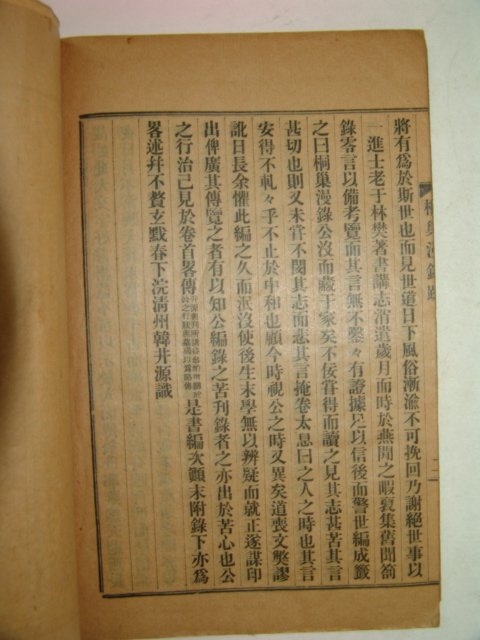 桐巢漫錄跋
二
將有爲於斯世也而見世道日下風俗漸渝不可挽回乃謝絕世事以
一進士老于林樊著書講志消遣歲月而時於燕閒之暇裒集舊聞箚
錄零言以備考覽而其言無不鑿々有證據足以信後而警世編成籤
之曰桐巢漫錄公沒而藏于家矣不佞嘗得而讀之見其志甚苦其言
甚切也則又未嘗不閔其志而悲其言掩卷太息曰之人之時也其言
安得不軋々乎不止於中和也顧今時視公之時又異矣道喪文獘謬
訛日長余懼此編之久而泯沒使後生末學無以辨疑而就正遂謀印
出俾廣其傳覽之者有以知公編錄之苦刊錄者之亦出於苦心也公
之行治已見於卷首畧傳是書編次顚末附錄下亦爲
畧述幷不贅玄黓春下浣淸州韓井源識